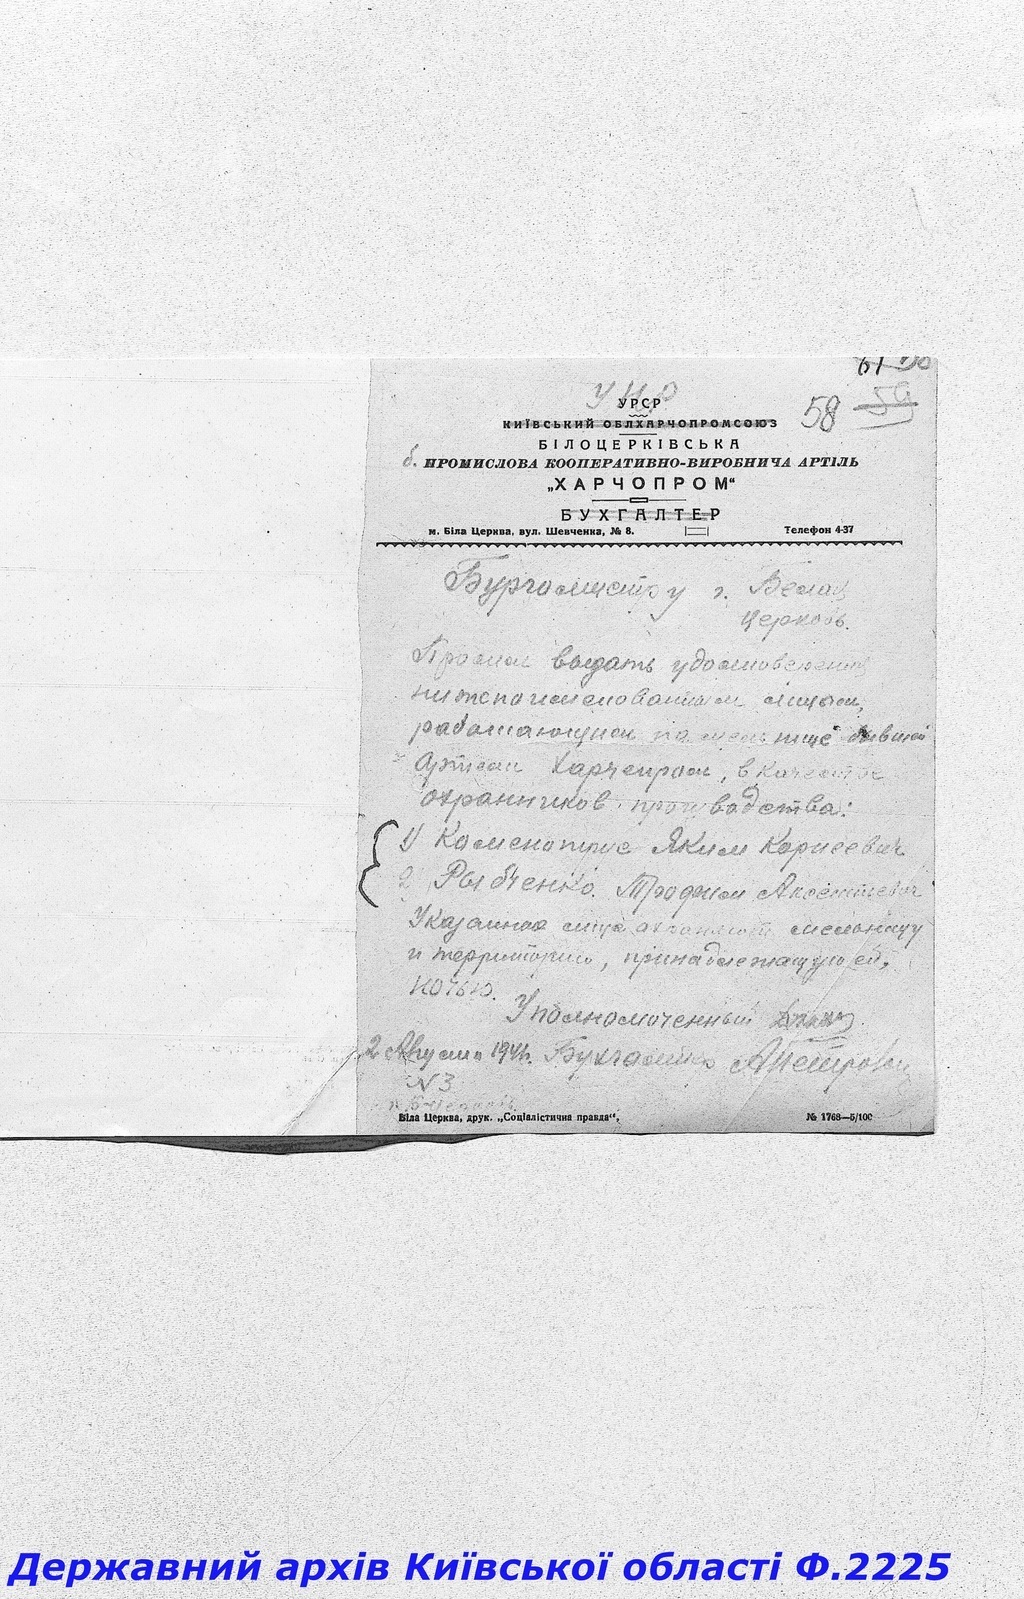 61
58 56
У Н Р
УРСР
КИЇВСЬКИЙ ОБЛХАРЧОПРОМСОЮЗ
БІЛОЦЕРКІВСЬКА
б. ПРОМИСЛОВА КООПЕРАТИВНО-ВИРОБНИЧА АРТІЛЬ
„ХАРЧОПРОМ“
БУХГАЛТЕР
м. Біла Церква, вул. Шевченка, № 8. Телефон 4-37
Бургомистру г. Белая
Церковь.
Просим выдать удостоверения
нижепоименованным лицам,
работающим на мельнице бывшей
Артели Харчепром, в качестве
охранников производства:
1) Яким Корнеевич
2) Рыбченко Трофим Аксентиевич
Указанные лица охраняют мельницу
и территорию, принадлежащую ей,
ночью.
Уполномоченный
2 Августа 1941г. Бухгалтер
№3
Біла Церква, друк. „Соціалістична правда“, № 1768—5/100
Державний архів Київської області Ф.2225